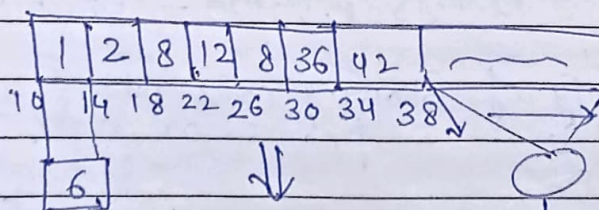 1 2 8 12 8 36 42
10 14 18 22 26 30 34 38
6